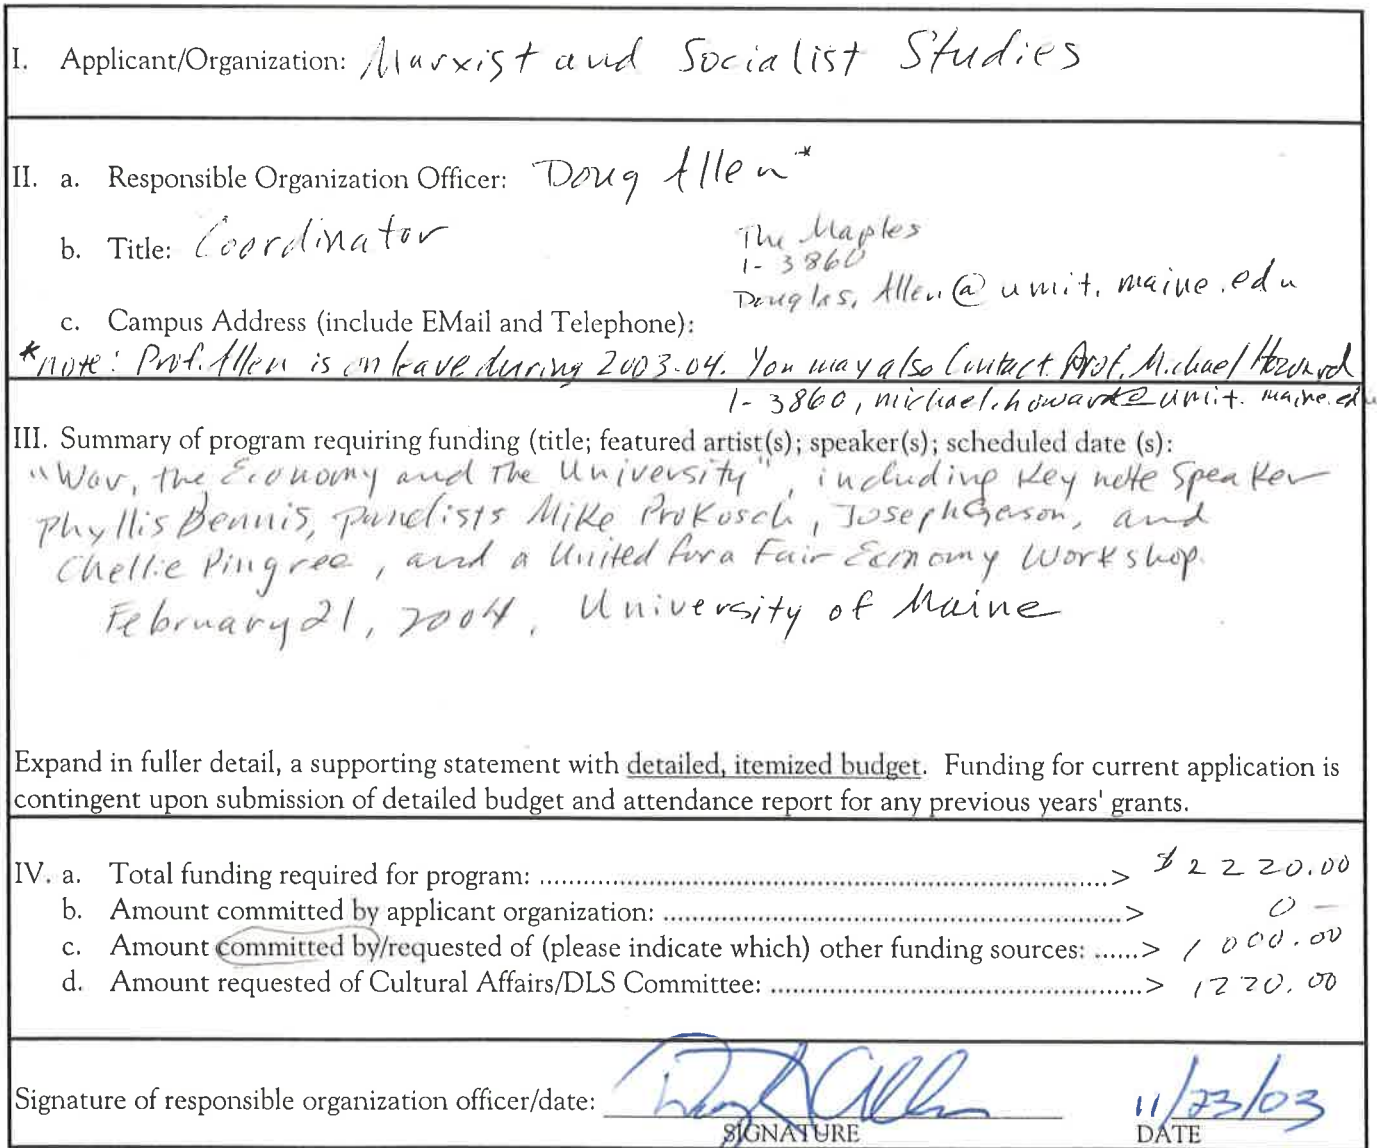 I. Applicant/Organization: Marxist and Socialist Studies
II. a. Responsible Organization Officer: Doug Allen*
b. Title: Coordinator
The Maples
1-3860
Douglas.Allen@umit.maine.edu
c. Campus Address (include EMail and Telephone):
*note: Prof. Allen is on leave during 2003-04. You may also Contact Prof. Michael Howard
1-3860, michael.howard@umit.maine.edu
III. Summary of program requiring funding (title; featured artist(s); speaker(s); scheduled date (s):
"War, the Economy and the University", including Keynote Speaker
Phyllis Bennis, panelists Mike Prokosch, Joseph Gerson, and
Chellie Pingree, and a United for a Fair Economy Workshop.
February 21, 2004, University of Maine
Expand in fuller detail, a supporting statement with detailed, itemized budget. Funding for current application is
contingent upon submission of detailed budget and attendance report for any previous years' grants.
IV. a. Total funding required for program: ...> $2220.00
b. Amount committed by applicant organization: ...> 0 -
c. Amount committed by/requested of (please indicate which) other funding sources: ......> 1000.00
d. Amount requested of Cultural Affairs/DLS Committee: ...> 1220.00
Signature of responsible organization officer/date: Doug Allen 11/23/03
SIGNATURE DATE